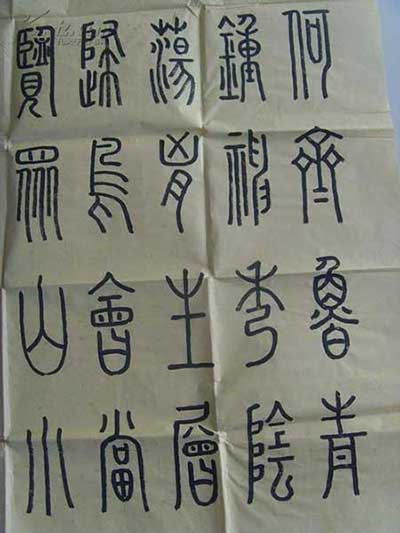 何齊魯青
鍾神秀陰
蕩胸生層
歸鳥會當
覽眾山小